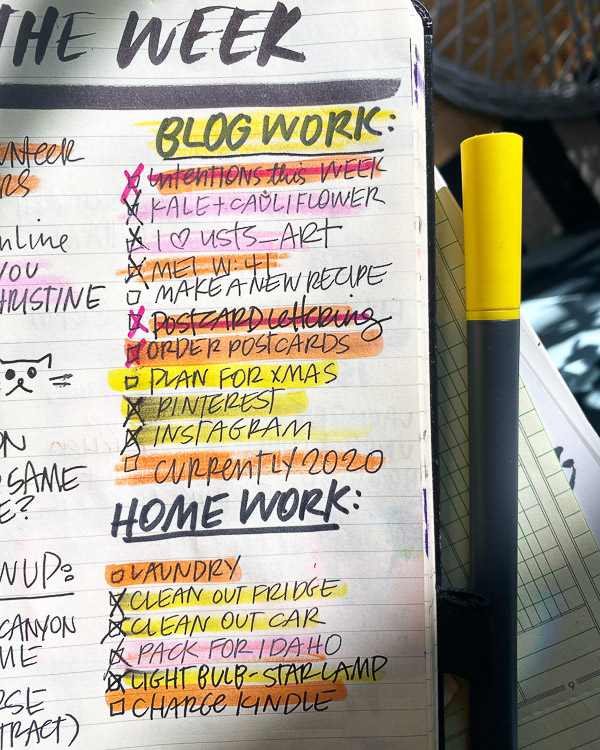 THE WEEK
BLOG WORK:
intentions this WEEK
KALE + CAULIFLOWER
I ♡ LISTS_ART
MEL W: 41
MAKE A NEW RECIPE
POSTCARD Lettering
ORDER POSTCARDS
PLAN FOR XMAS
PINTEREST
INSTAGRAM
CURRENTLY 2020
HOME WORK:
LAUNDRY
CLEAN OUT FRIDGE
CLEAN OUT CAR
PACK FOR IDAHO
LIGHT BULB-STAR LAMP
CHARGE KINDLE
YOU
SAME
CANYON
9